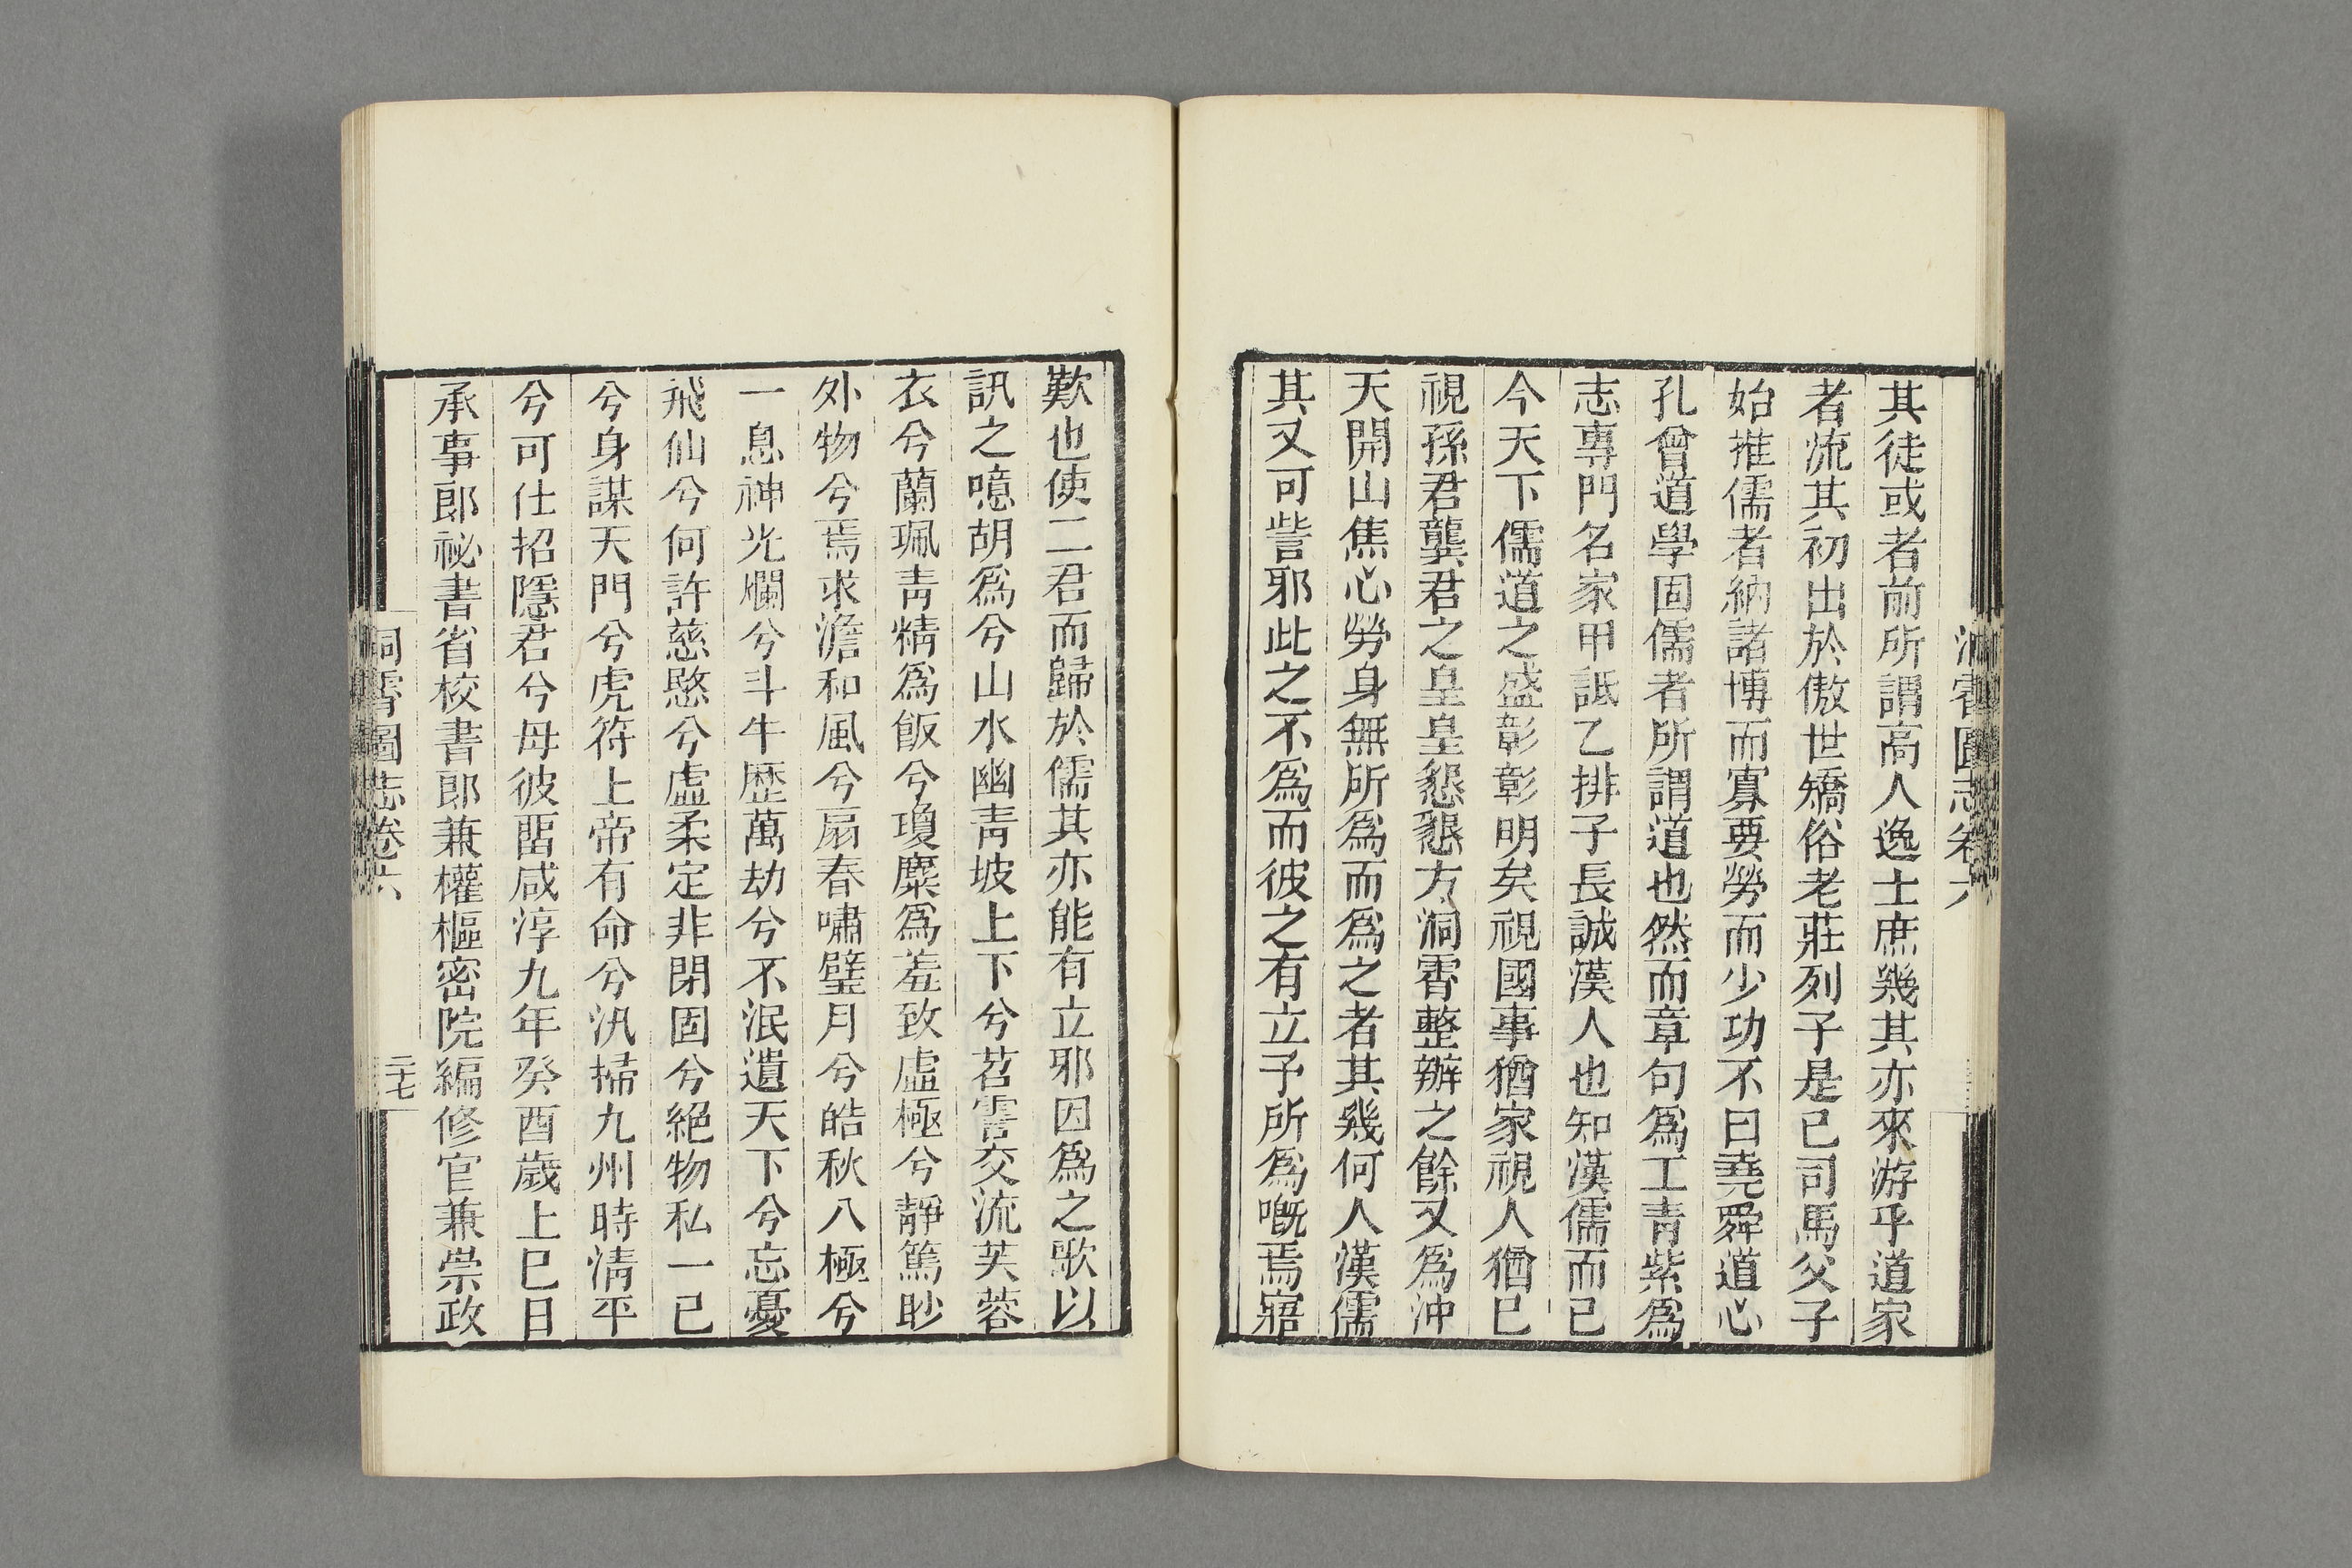 洞霄圖志卷六
其徒或者前所謂高人逸士庶幾其亦來游乎道家
者流其初出於傲世矯俗老莊列子是已司馬父子
始推儒者納諸博而寡要勞而少功不曰堯舜道心
孔曾道學固儒者所謂道也然而章句爲工青紫爲
志專門名家甲詆乙排子長誠漢人也知漢儒而已
今天下儒道之盛彰彰明矣視國事猶家視人猶已
視孫君龔君之皇皇懇懇方洞霄整辦之餘又爲沖
天開山焦心勞身無所爲而爲之者其幾何人漢儒
其又可訾邪此之不爲而彼之有立予所爲嘅焉寤
歎也使二君而歸於儒其亦能有立邪因爲之歌以
訊之噫胡爲兮山水幽青坡上下兮苕霅交流芙蓉
衣兮蘭珮青精爲飯兮瓊麋爲羞致虛極兮靜篤眇
外物兮焉求澹和風兮扇春嘯璧月兮皓秋八極兮
一息神光爛兮斗牛歷萬劫兮不泯遺天下兮忘憂
飛仙兮何許慈愍兮虛柔定非閉固兮絕物私一己
兮身謀天門兮虎符上帝有命兮汛掃九州時清平
兮可仕招隱君兮毋彼畱咸淳九年癸酉歲上巳日
承事郎祕書省校書郎兼權樞密院編修官兼崇政
洞霄圖志卷六
二十七